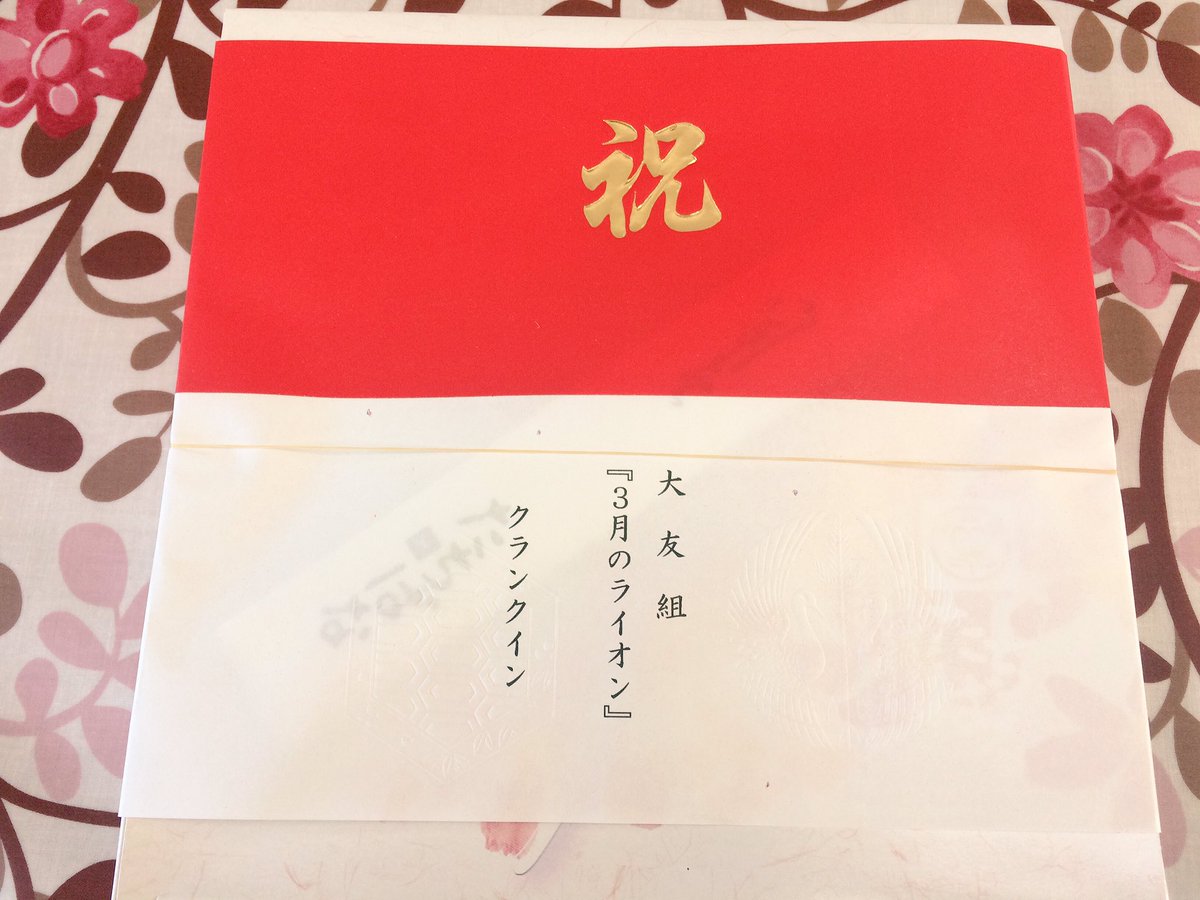 祝
大友組
『3月のライオン』
クランクイン